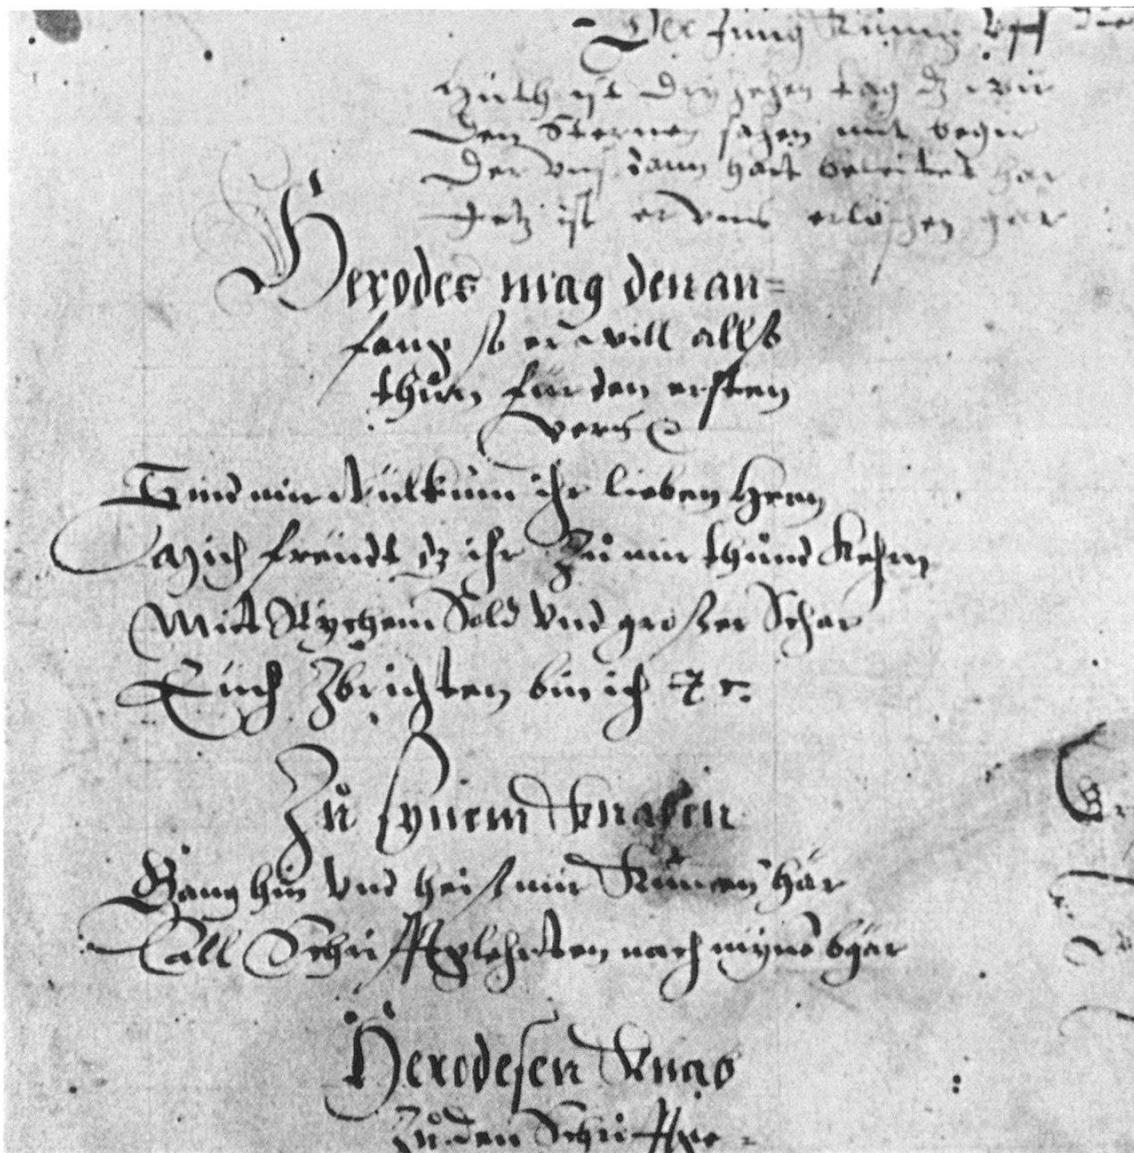 Der Jüng Künig Uff die
Hüth ist Dryzehen tag dz wir
Den Sternen sahen mit begir
Der uns dann hart beleitet har
Jetz ist er vns erloschen gar
Herodes mag den an=
fang so er will alls
thůn für den ersten
vers
Sind mir Wülkum ihr lieben Herrn
Mich freüdt dz ihr Zů mir thůnd Kehrn
Mitt Rychem Sold Vnd großer Schar
Eüch Zbrichten bin ich
Zů synem Knaben
Gang hin Vnd heiß mir Kümen här
All Schrifftglehrten nach myne bgär
Herodesen Knab
Zů den Schrifftge=